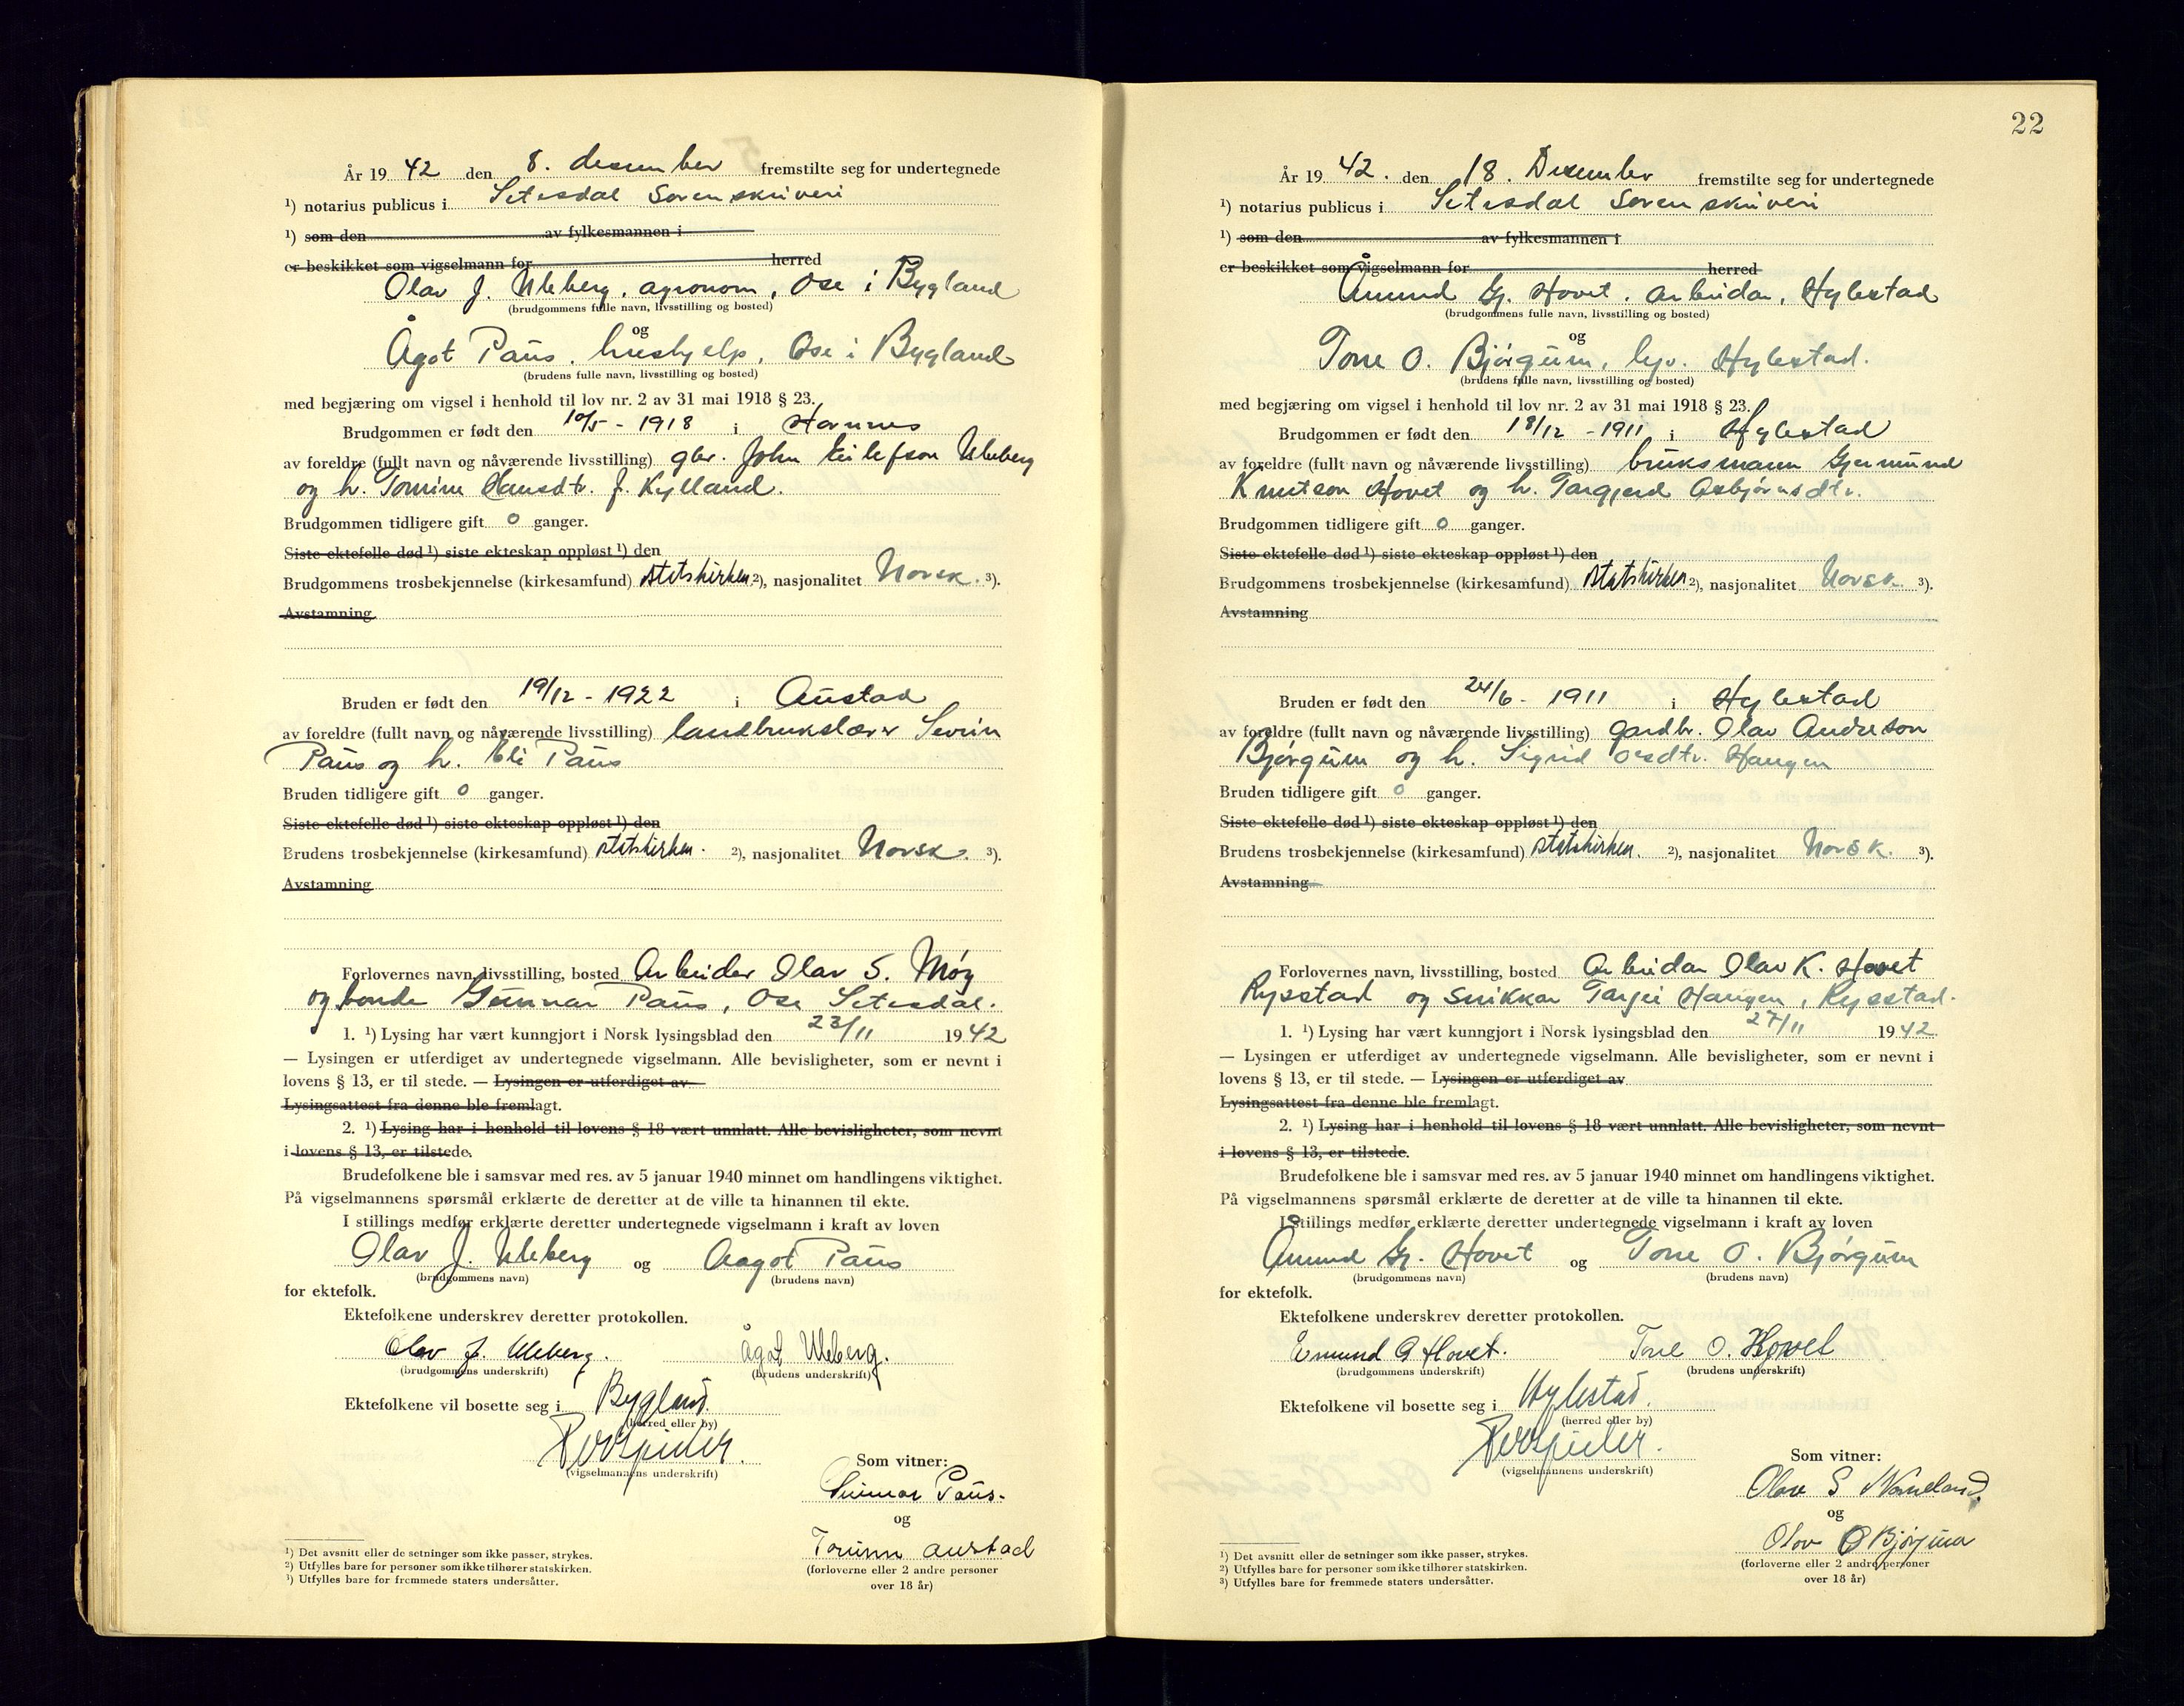 År 19 42 den 8. desember fremstilte seg for undertegnede
¹) notarius publicus i Setesdal Sorenskriveri
¹) som den av fylkesmannen i
er beskikket som vigselmann for herred
Olav J. Uleberg, agronom, Ose i Bygland
(brudgommens fulle navn, livsstilling og bosted)
og
Ågot Paus, hushjelp, Ose i Bygland
(brudens fulle navn, livsstilling og bosted)
med begjæring om vigsel i henhold til lov nr. 2 av 31 mai 1918 § 23.
Brudgommen er født den 10/5 - 1918 i Hornnes
av foreldre (fullt navn og nåværende livsstilling) gbr. John Eilefson Uleberg
og h. Tomine Hansdtr. f. Kylland.
Brudgommen tidligere gift 0 ganger.
Siste ektefelle død ¹) siste ekteskap oppløst ¹) den
Brudgommens trosbekjennelse (kirkesamfund) statskirken ²), nasjonalitet Norsk. ³).
Avstamning
Bruden er født den 19/12 - 1922 i Austad
av foreldre (fullt navn og nåværende livsstilling) landbrukslærer Sevrin
Paus og h. Eli Paus
Bruden tidligere gift 0 ganger.
Siste ektefelle død ¹) siste ekteskap oppløst ¹) den
Brudens trosbekjennelse (kirkesamfund) statskirken. ²), nasjonalitet Norsk. ³).
Avstamning
Forlovernes navn, livsstilling, bosted Arbeider Olav S. Moy
og bonde Gunnar Paus, Ose Setesdal.
1. ¹) Lysing har vært kunngjort i Norsk lysingsblad den 23/11 19 42
— Lysingen er utferdiget av undertegnede vigselmann. Alle bevisligheter, som er nevnt i
lovens § 13, er til stede. — Lysingen er utferdiget av
Lysingsattest fra denne ble fremlagt.
2. ¹) Lysing har i henhold til lovens § 18 vært unnlatt. Alle bevisligheter, som nevnt
i lovens § 13, er tilstede.
Brudefolkene ble i samsvar med res. av 5 januar 1940 minnet om handlingens viktighet.
På vigselmannens spørsmål erklærte de deretter at de ville ta hinannen til ekte.
I stillings medfør erklærte deretter undertegnede vigselmann i kraft av loven
Olav J. Uleberg og Aagot Paus
(brudgommens navn) (brudens navn)
for ektefolk.
Ektefolkene underskrev deretter protokollen.
Olav J. Uleberg. Ågot Uleberg.
(brudgommens underskrift) (brudens underskrift)
Ektefolkene vil bosette seg i Bygland.
(herred eller by)
(vigselmannens underskrift)
Som vitner:
Gunnar Paus.
og
Torunn Austad
(forloverne eller 2 andre personer
over 18 år)
¹) Det avsnitt eller de setninger som ikke passer, strykes.
²) Utfylles bare for personer som ikke tilhører statskirken.
³) Utfylles bare for fremmede staters undersåtter.
22
År 19 42. den 18. Desember fremstilte seg for undertegnede
¹) notarius publicus i Setesdal Sorenskriveri
¹) som den av fylkesmannen i
er beskikket som vigselmann for herred
Åmund Gj. Hovet, arbeidar, Hylestad
(brudgommens fulle navn, livsstilling og bosted)
og
Tone O. Bjørgum, hjv. Hylestad.
(brudens fulle navn, livsstilling og bosted)
med begjæring om vigsel i henhold til lov nr. 2 av 31 mai 1918 § 23.
Brudgommen er født den 18/12 - 1911 i Hylestad
av foreldre (fullt navn og nåværende livsstilling) bruksmann Gjermund
Knutson Hovet og h. Targjerd Asbjørnsdtr.
Brudgommen tidligere gift 0 ganger.
Siste ektefelle død ¹) siste ekteskap oppløst ¹) den
Brudgommens trosbekjennelse (kirkesamfund) statskirken ²), nasjonalitet Norsk. ³).
Avstamning
Bruden er født den 24/6 - 1911 i Hylestad
av foreldre (fullt navn og nåværende livsstilling) gardbr. Olav Andreson
Bjørgum og h. Sigrid Haugen
Bruden tidligere gift 0 ganger.
Siste ektefelle død ¹) siste ekteskap oppløst ¹) den
Brudens trosbekjennelse (kirkesamfund) statskirken. ²), nasjonalitet Norsk. ³).
Avstamning
Forlovernes navn, livsstilling, bosted Arbeidar Olav K. Hovet
Rysstad og Snikkar Tarjei Haugen, Rysstad.
1. ¹) Lysing har vært kunngjort i Norsk lysingsblad den 27/11 19 42.
— Lysingen er utferdiget av undertegnede vigselmann. Alle bevisligheter, som er nevnt i
lovens § 13, er til stede. — Lysingen er utferdiget av
Lysingsattest fra denne ble fremlagt.
2. ¹) Lysing har i henhold til lovens § 18 vært unnlatt. Alle bevisligheter, som nevnt
i lovens § 13, er tilstede.
Brudefolkene ble i samsvar med res. av 5 januar 1940 minnet om handlingens viktighet.
På vigselmannens spørsmål erklærte de deretter at de ville ta hinannen til ekte.
I stillings medfør erklærte deretter undertegnede vigselmann i kraft av loven
Åmund Gj. Hovet og Tone O. Bjørgum
(brudgommens navn) (brudens navn)
for ektefolk.
Ektefolkene underskrev deretter protokollen.
Åmund G Hovet. Tone O. Hovet
(brudgommens underskrift) (brudens underskrift)
Ektefolkene vil bosette seg i Hylestad.
(herred eller by)
(vigselmannens underskrift)
Som vitner:
Olav S
og
Olav O Bjørgum
(forloverne eller 2 andre personer
over 18 år)
¹) Det avsnitt eller de setninger som ikke passer, strykes.
²) Utfylles bare for personer som ikke tilhører statskirken.
³) Utfylles bare for fremmede staters undersåtter.